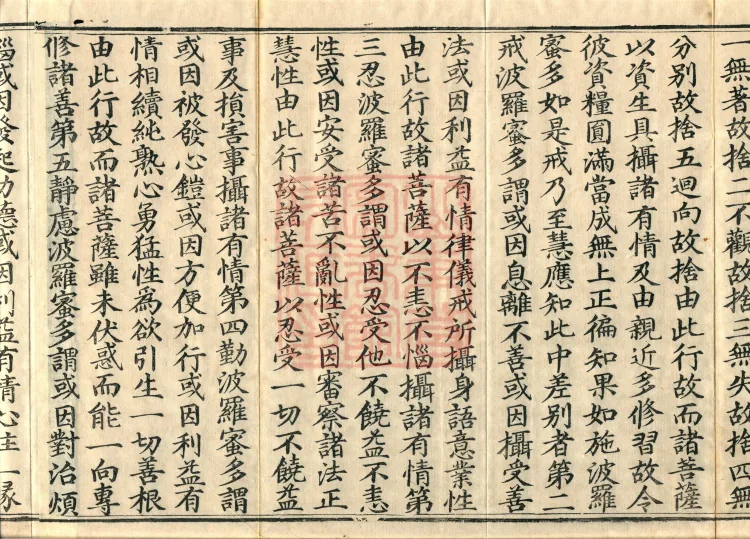 一無著故捨二不觀故捨三無失故捨四無
分別故捨五迴向故捨由此行故而諸菩薩
以資生具攝諸有情及由親近多修習故令
彼資糧圓滿當成無上正徧知果如施波羅
蜜多如是戒乃至慧應知此中差別者第二
戒波羅蜜多謂或因息離不善或因攝受善
法或因利益有情律儀戒所攝身語意業性
由此行故諸菩薩以不恚不惱攝諸有情第
三忍波羅蜜多謂或因忍受他不饒益不恚
性或因安受諸苦不亂性或因審察諸法正
慧性由此行故諸菩薩以忍受一切不饒益
事及損害事攝諸有情第四勤波羅蜜多謂
或因被發心鎧或因方便加行或因利益有
情相續純熟心勇猛性為欲引生一切善根
由此行故而諸菩薩雖未伏惑而能一向專
修諸善第五靜慮波羅蜜多謂或因對治煩
惱或因發起功德或因利益有情心住一緣